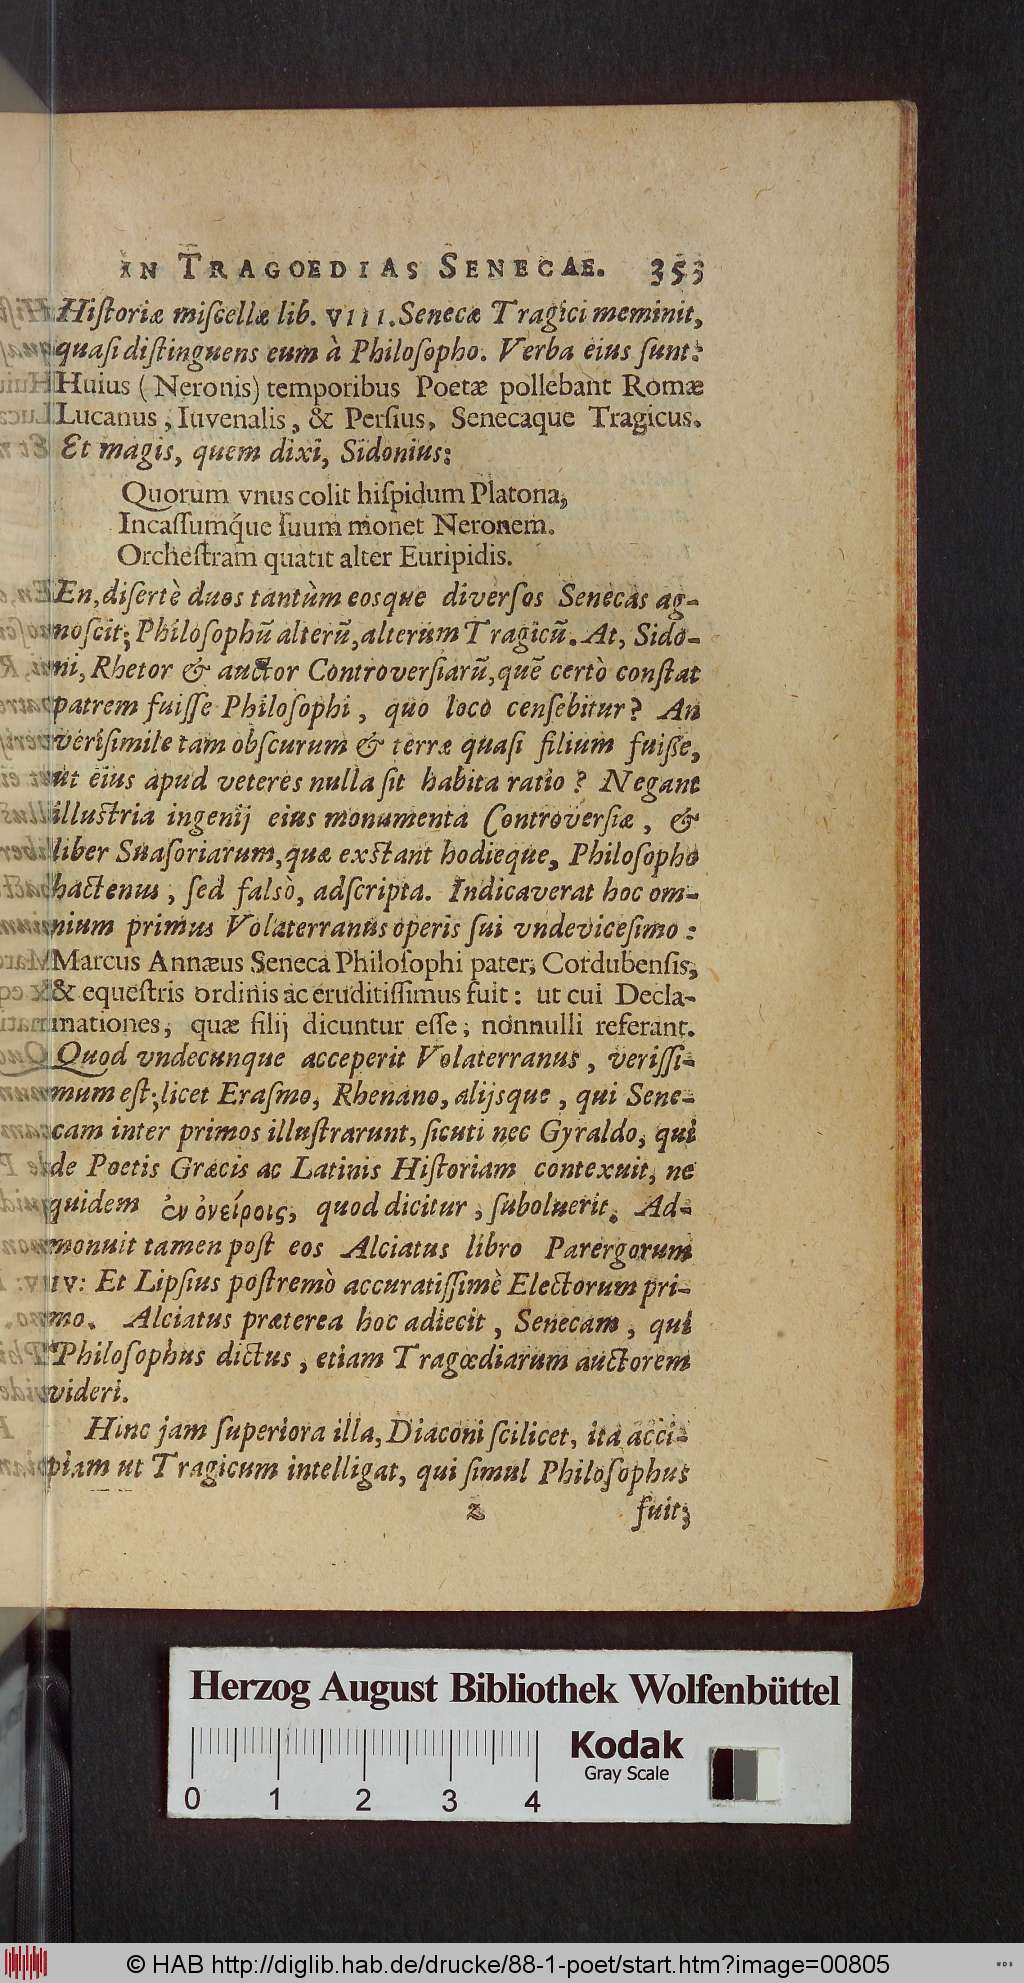 IN TRAGOEDIAS SENECAE. 353
Hiſtoriæ miſcellæ lib. VIII. Senecæ Tragici meminit,
quaſi diſtinguens eum à Philoſopho. Verba eius ſunt:
Huius (Neronis) temporibus Poetæ pollebant Romæ
Lucanus, Iuvenalis, & Perſius, Senecaque Tragicus.
Et magis, quem dixi, Sidonius:
Quorum vnus colit hiſpidum Platona,
Incaſſumq́ue ſuum monet Neronem.
Orcheſtram quatit alter Euripidis.
En, diſertè duos tantùm eosque diverſos Senecas ag-
noſcit; Philoſophũ alterũ, alterum Tragicũ. At, Sido-
ni, Rhetor & auctor Controverſiarũ, quẽ certò conſtat
patrem fuiſſe Philoſophi, quo loco cenſebitur? An
veriſimile tam obſcurum & terræ quaſi filium fuiſſe,
ut eius apud veteres nulla ſit habita ratio? Negant
illuſtria ingenij eius monumenta Controverſiæ, &
liber Suaſoriarum, quæ exſtant hodieque, Philoſopho
hactenus, ſed falsò, adſcripta. Indicaverat hoc om-
nium primus Volaterranus operis ſui vndeviceſimo:
Marcus Annæus Seneca Philoſophi pater, Cordubenſis,
& equeſtris ordinis ac eruditiſſimus fuit: ut cui Decla-
mationes, quæ filij dicuntur eſſe, nonnulli referant.
Quod vndecunque acceperit Volaterranus, veriſſi-
mum eſt; licet Eraſmo, Rhenano, alijsque, qui Sene-
cam inter primos illuſtrarunt, ſicuti nec Gyraldo, qui
de Poetis Græcis ac Latinis Hiſtoriam contexuit, ne
quidem ἐν ὀνείροις, quod dicitur, ſuboluerit. Ad-
monuit tamen poſt eos Alciatus libro Parergorum
IV: Et Lipſius poſtremò accuratiſſimè Electorum pri-
mo. Alciatus præterea hoc adiecit, Senecam, qui
Philoſophus dictus, etiam Tragœdiarum auctorem
videri.
Hinc jam ſuperiora illa, Diaconi ſcilicet, ita acci-
piam ut Tragicum intelligat, qui ſimul Philoſophus
z fuit;
Herzog August Bibliothek Wolfenbüttel
Kodak
Gray Scale
0 1 2 3 4
© HAB http://diglib.hab.de/drucke/88-1-poet/start.htm?image=00805